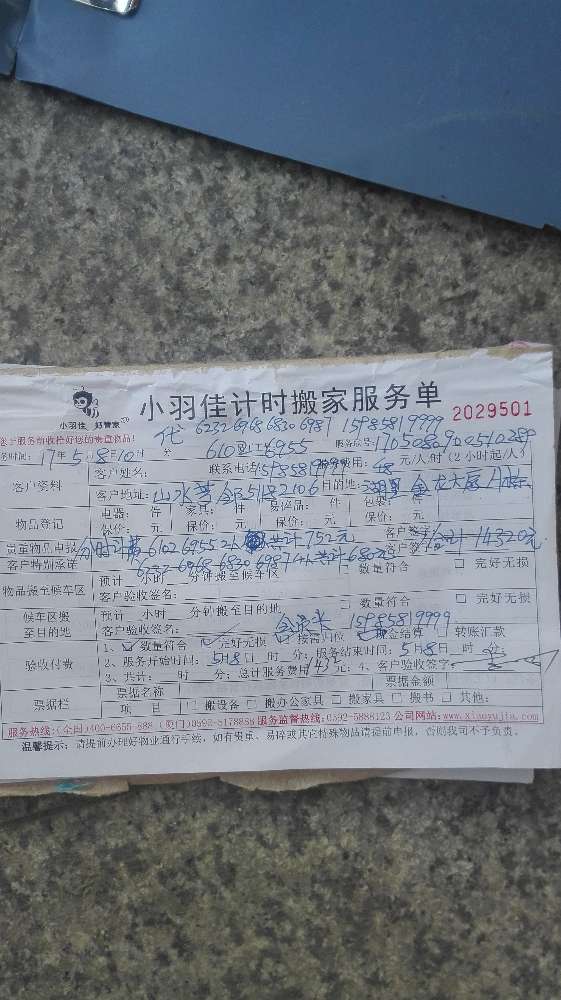 小羽佳计时搬家服务单
小羽佳 好管家
2029501
代 6232 6968 6830 6987 15985819999
服务前收检好您的贵重物品!
务时间: 17年5月8日10时 分 服务编号: 170508
客户资料
客户姓名: 联系电话: 费用: 48元/人.时 (2小时起/人)
客户地址: 目的地: 湖里
物品登记
电器: 件 家具: 件 易碎品: 件 包装: 件
保价: 元 保价: 元 保价: 元 保价: 元
贵重物品申报 共计752元 客户签字
客户特别承诺 6232 6968 6830 6987 4人共计680元 客户签
14320元
物品搬至候车区
预计 小时 分钟搬至候车区 □ 数量符合 □ 完好无损
客户验收签名:
候车区搬至目的地
预计 小时 分钟搬至目的地 □ 数量符合 □ 完好无损
客户验收签名: 15985819999
验收付费
1、□ 数量符合 完好无损 □ 按需归位 现金结算 □ 转账汇款
2、服务开始时间: 5月8日 时 分; 服务结束时间: 5月8日 时 分
3、共计: 时 分; 总计服务费用1432元; 4、客户验收签字:
票据栏
票据名称 票据金额
项 目 □ 搬设备 □ 搬办公家具 □ 搬家具 □ 搬书 □ 其他:
服务热线: (全国)400-6655-888 (厦门)0592-5178888 服务监督热线: 0592-5888123 公司网站: www.xiaoyujia.com
温馨提示: 请提前办理好物业通行手续, 如有贵重、易碎或其它特殊物品请提前申报, 否则我司不予负责。